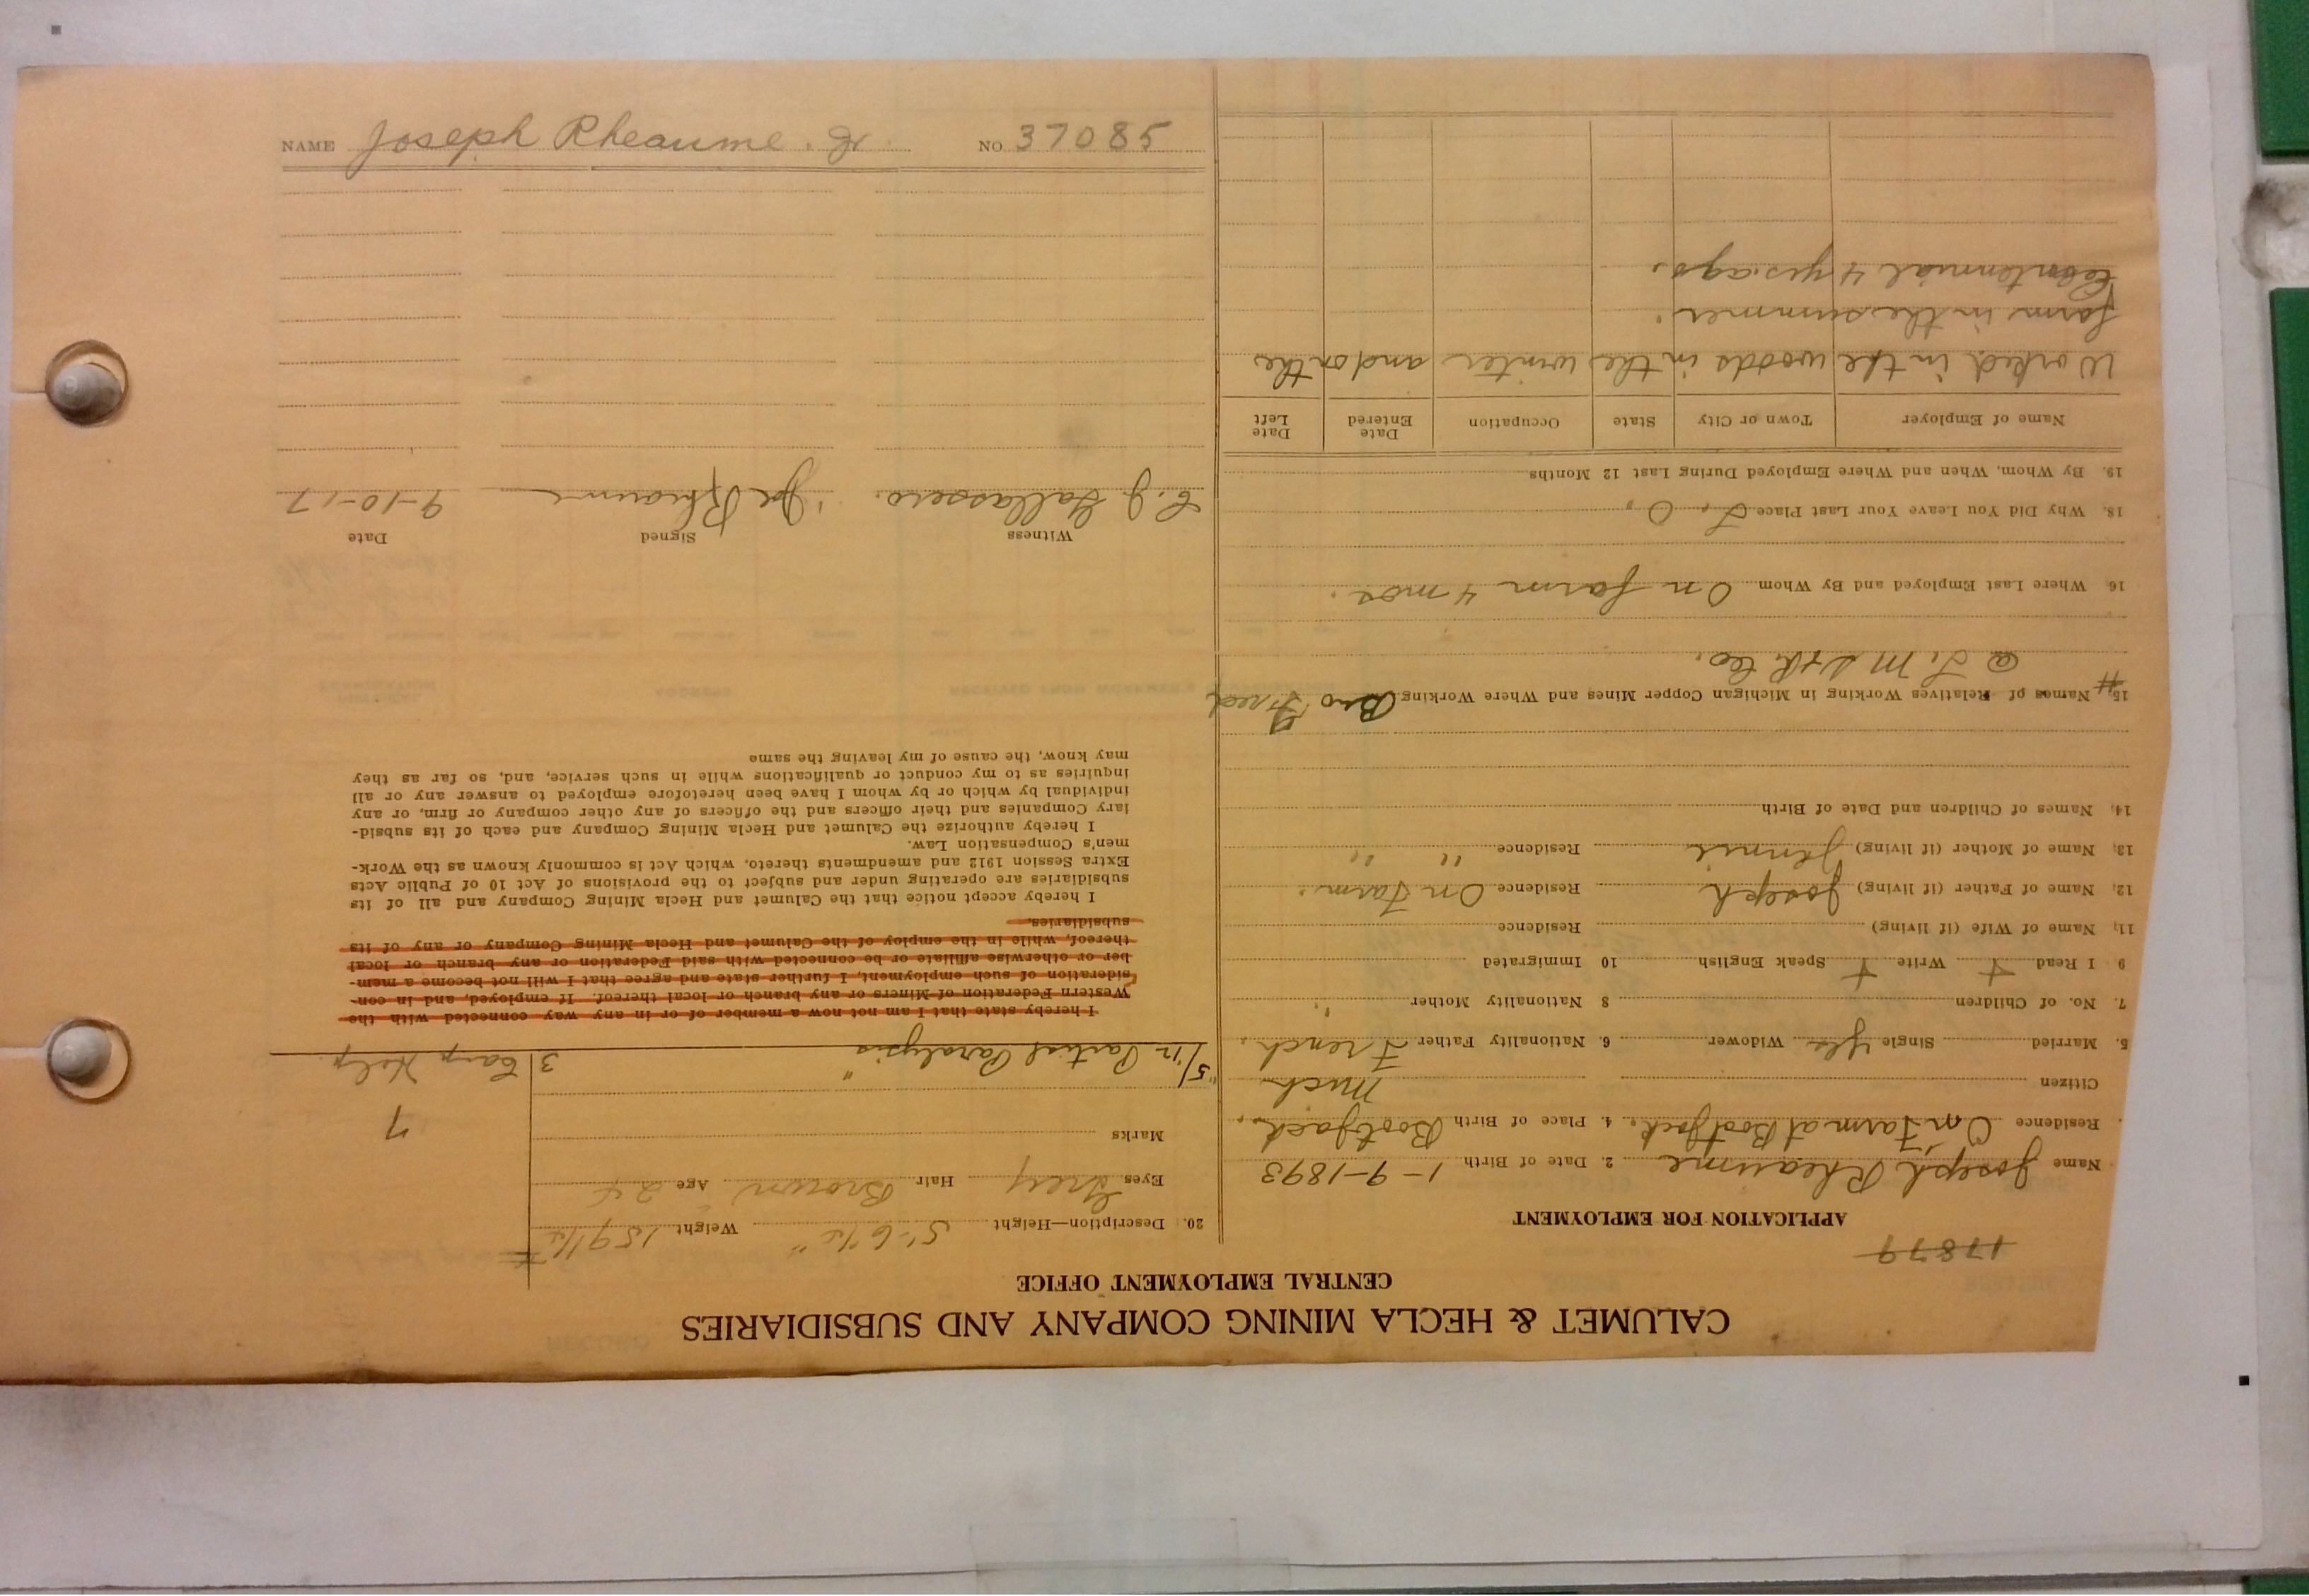 CALUMET & HECLA MINING COMPANY AND SUBSIDIARIES
CENTRAL EMPLOYMENT OFFICE
17879
APPLICATION FOR EMPLOYMENT
Name Joseph Rheaume 2. Date of Birth 1-9-1893
Residence On Farm at Bootjack. 4. Place of Birth Bootjack,
Citizen Mich
5. Married Single yes Widower 6. Nationality Father French.
7. No. of Children 8 Nationality Mother "
9 I Read + Write + Speak English 10 Immigrated
11. Name of Wife (if living) Residence
12. Name of Father (if living) Joseph Residence On Farm.
13. Name of Mother (if living) Jennie Residence " "
14. Names of Children and Date of Birth
15. Names of Relatives Working in Michigan Copper Mines and Where Working Bro Fred
16. Where Last Employed and By Whom On farm 4 mos.
18. Why Did You Leave Your Last Place
19. By Whom, When and Where Employed During Last 12 Months
Name of Employer Town or City State Occupation Date Entered Date Left
Worked in the woods in the winter and on the
farm in the summer.
Centennial 4 yrs. ago.
20. Description—Height 5'-6 1/2" Weight 159 1/2
Eyes Grey Hair Brown Age 24
Marks
7
Partial Paralysis" 3
I hereby state that I am not now a member of or in any way connected with the
Western Federation of Miners or any branch or local thereof. If employed, and in con-
sideration of such employment, I further state and agree that I will not become a mem-
ber or otherwise affiliate or be connected with said Federation or any branch or local
thereof, while in the employ of the Calumet and Hecla Mining Company or any of its
subsidiaries.
I hereby accept notice that the Calumet and Hecla Mining Company and all of its
subsidiaries are operating under and subject to the provisions of Act 10 of Public Acts
Extra Session 1912 and amendments thereto, which Act is commonly known as the Work-
men's Compensation Law.
I hereby authorize the Calumet and Hecla Mining Company and each of its subsid-
iary Companies and their officers and the officers of any other company or firm, or any
individual by which or by whom I have been heretofore employed to answer any or all
inquiries as to my conduct or qualifications while in such service, and, so far as they
may know, the cause of my leaving the same
Witness Signed Date
Joe Rheaume 9-10-17
NAME Joseph Rheaume. Jr. NO. 37085